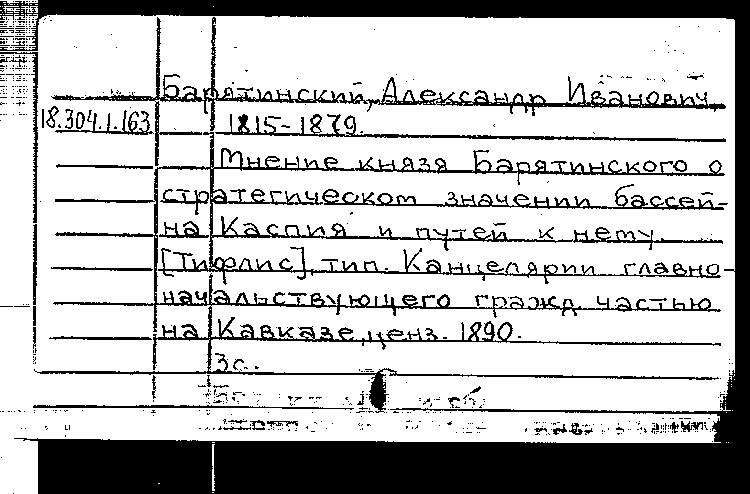 Барятинский, Александр Иванович,
18.304.1.163 1815-1879.
Мнение князя Барятинского о
стратегическом значении бассей-
на Каспия и путей к нему.
[Тифлис], тип. Канцелярии главно-
начальствующего гражд. частью
на Кавказе, ценз. 1890.
3с.